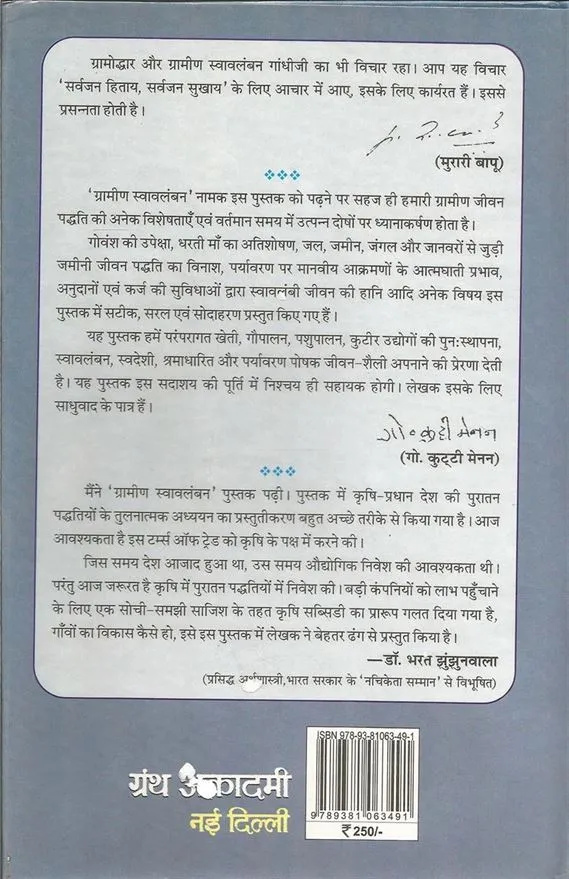 ग्रामोद्धार और ग्रामीण स्वावलंबन गांधीजी का भी विचार रहा। आप यह विचार
‘सर्वजन हिताय, सर्वजन सुखाय’ के लिए आचार में आए, इसके लिए कार्यरत हैं। इससे
प्रसन्नता होती है।
(मुरारी बापू)
‘ग्रामीण स्वावलंबन’ नामक इस पुस्तक को पढ़ने पर सहज ही हमारी ग्रामीण जीवन
पद्धति की अनेक विशेषताएँ एवं वर्तमान समय में उत्पन्न दोषों पर ध्यानाकर्षण होता है।
गोवंश की उपेक्षा, धरती माँ का अतिशोषण, जल, जमीन, जंगल और जानवरों से जुड़ी
जमीनी जीवन पद्धति का विनाश, पर्यावरण पर मानवीय आक्रमणों के आत्मघाती प्रभाव,
अनुदानों एवं कर्ज की सुविधाओं द्वारा स्वावलंबी जीवन की हानि आदि अनेक विषय इस
पुस्तक में सटीक, सरल एवं सोदाहरण प्रस्तुत किए गए हैं।
यह पुस्तक हमें परंपरागत खेती, गौपालन, पशुपालन, कुटीर उद्योगों की पुन:स्थापना,
स्वावलंबन, स्वदेशी, श्रमाधारित और पर्यावरण पोषक जीवन-शैली अपनाने की प्रेरणा देती
है। यह पुस्तक इस सदाशय की पूर्ति में निश्चय ही सहायक होगी। लेखक इसके लिए
साधुवाद के पात्र हैं।
गो० कुट्टी मेनन
(गो. कुट्टी मेनन)
मैंने ‘ग्रामीण स्वावलंबन’ पुस्तक पढ़ी। पुस्तक में कृषि-प्रधान देश की पुरातन
पद्धतियों के तुलनात्मक अध्ययन का प्रस्तुतीकरण बहुत अच्छे तरीके से किया गया है। आज
आवश्यकता है इस टर्म्स ऑफ ट्रेड को कृषि के पक्ष में करने की।
जिस समय देश आजाद हुआ था, उस समय औद्योगिक निवेश की आवश्यकता थी।
परंतु आज जरूरत है कृषि में पुरातन पद्धतियों में निवेश की। बड़ी कंपनियों को लाभ पहुँचाने
के लिए एक सोची-समझी साजिश के तहत कृषि सब्सिडी का प्रारूप गलत दिया गया है,
गाँवों का विकास कैसे हो, इसे इस पुस्तक में लेखक ने बेहतर ढंग से प्रस्तुत किया है।
—डॉ. भरत झुंझुनवाला
(प्रसिद्ध अर्थशास्त्री,भारत सरकार के ‘नचिकेता सम्मान’ से विभूषित)
ISBN 978-93-81063-49-1
9 789381 063491
₹ 250/-
ग्रंथ अकादमी
नई दिल्ली